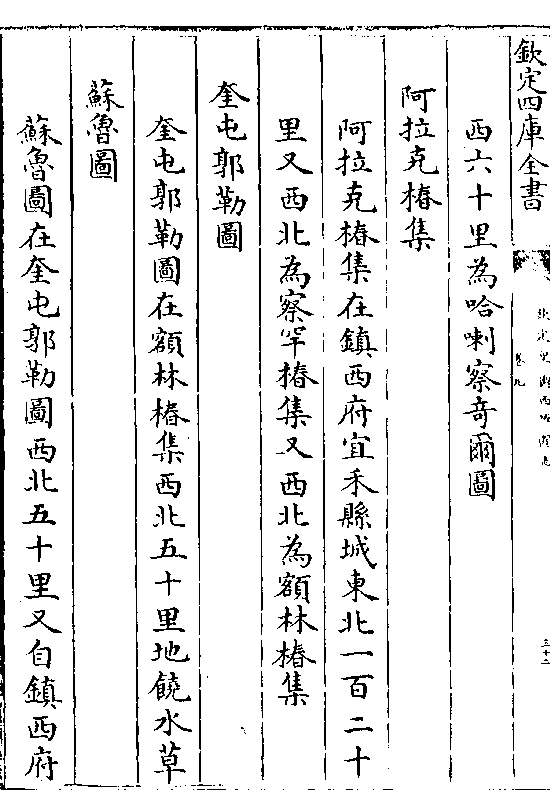 欽定四庫全書
欽定皇輿西域圖志
卷九
三十二
西六十里為哈喇察奇爾圖
阿拉克椿集
阿拉克椿集在鎮西府宜禾縣城東北一百二十
里又西北為察罕椿集又西北為額林椿集
奎屯郭勒圖
奎屯郭勒圖在額林椿集西北五十里地饒水草
蘇魯圖
蘇魯圖在奎屯郭勒圖西北五十里又自鎮西府